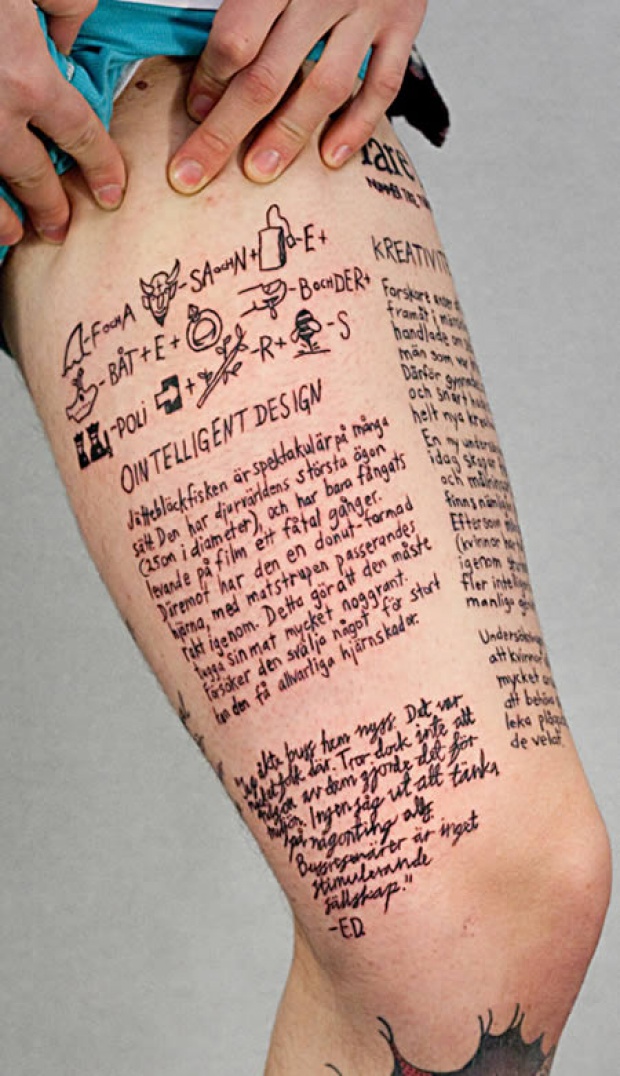 are
NUMMER TVÅ
-F OCH A -SA OCH N + -E+
-BÅT+E+ -B OCH DER+
-POLI + -R+ -S
OINTELLIGENT DESIGN
Jättebläckfisken är spektakulär på många
sätt. Den har djurvärldens största ögon
(25cm i diameter), och har bara fångats
levande på film ett fåtal gånger.
Däremot har den en donut-formad
hjärna, med matstrupen passerandes
rakt igenom. Detta gör att den måste
tugga sin mat mycket noggrant.
Försöker den svälja något för stort
kan den få allvarliga hjärnskador.
åkte buss hem nyss. Det var
mycket folk där. Tror dock inte att
någon av dem gjorde det för
miljön. Ingen såg ut att tänka
på någonting alls.
Bussresenärer är inget
stimulerande
sällskap."
-E.D.
KREATIVIT
Forskare
framåt i
handlade om
män som
Därför
och snart
helt nya
En ny
idag skapar
och
finns
Eftersom
(kvinnor har
igenom
fler
manliga
Undersökning
att kvinnor
mycket
att behöva
leka
de velat.